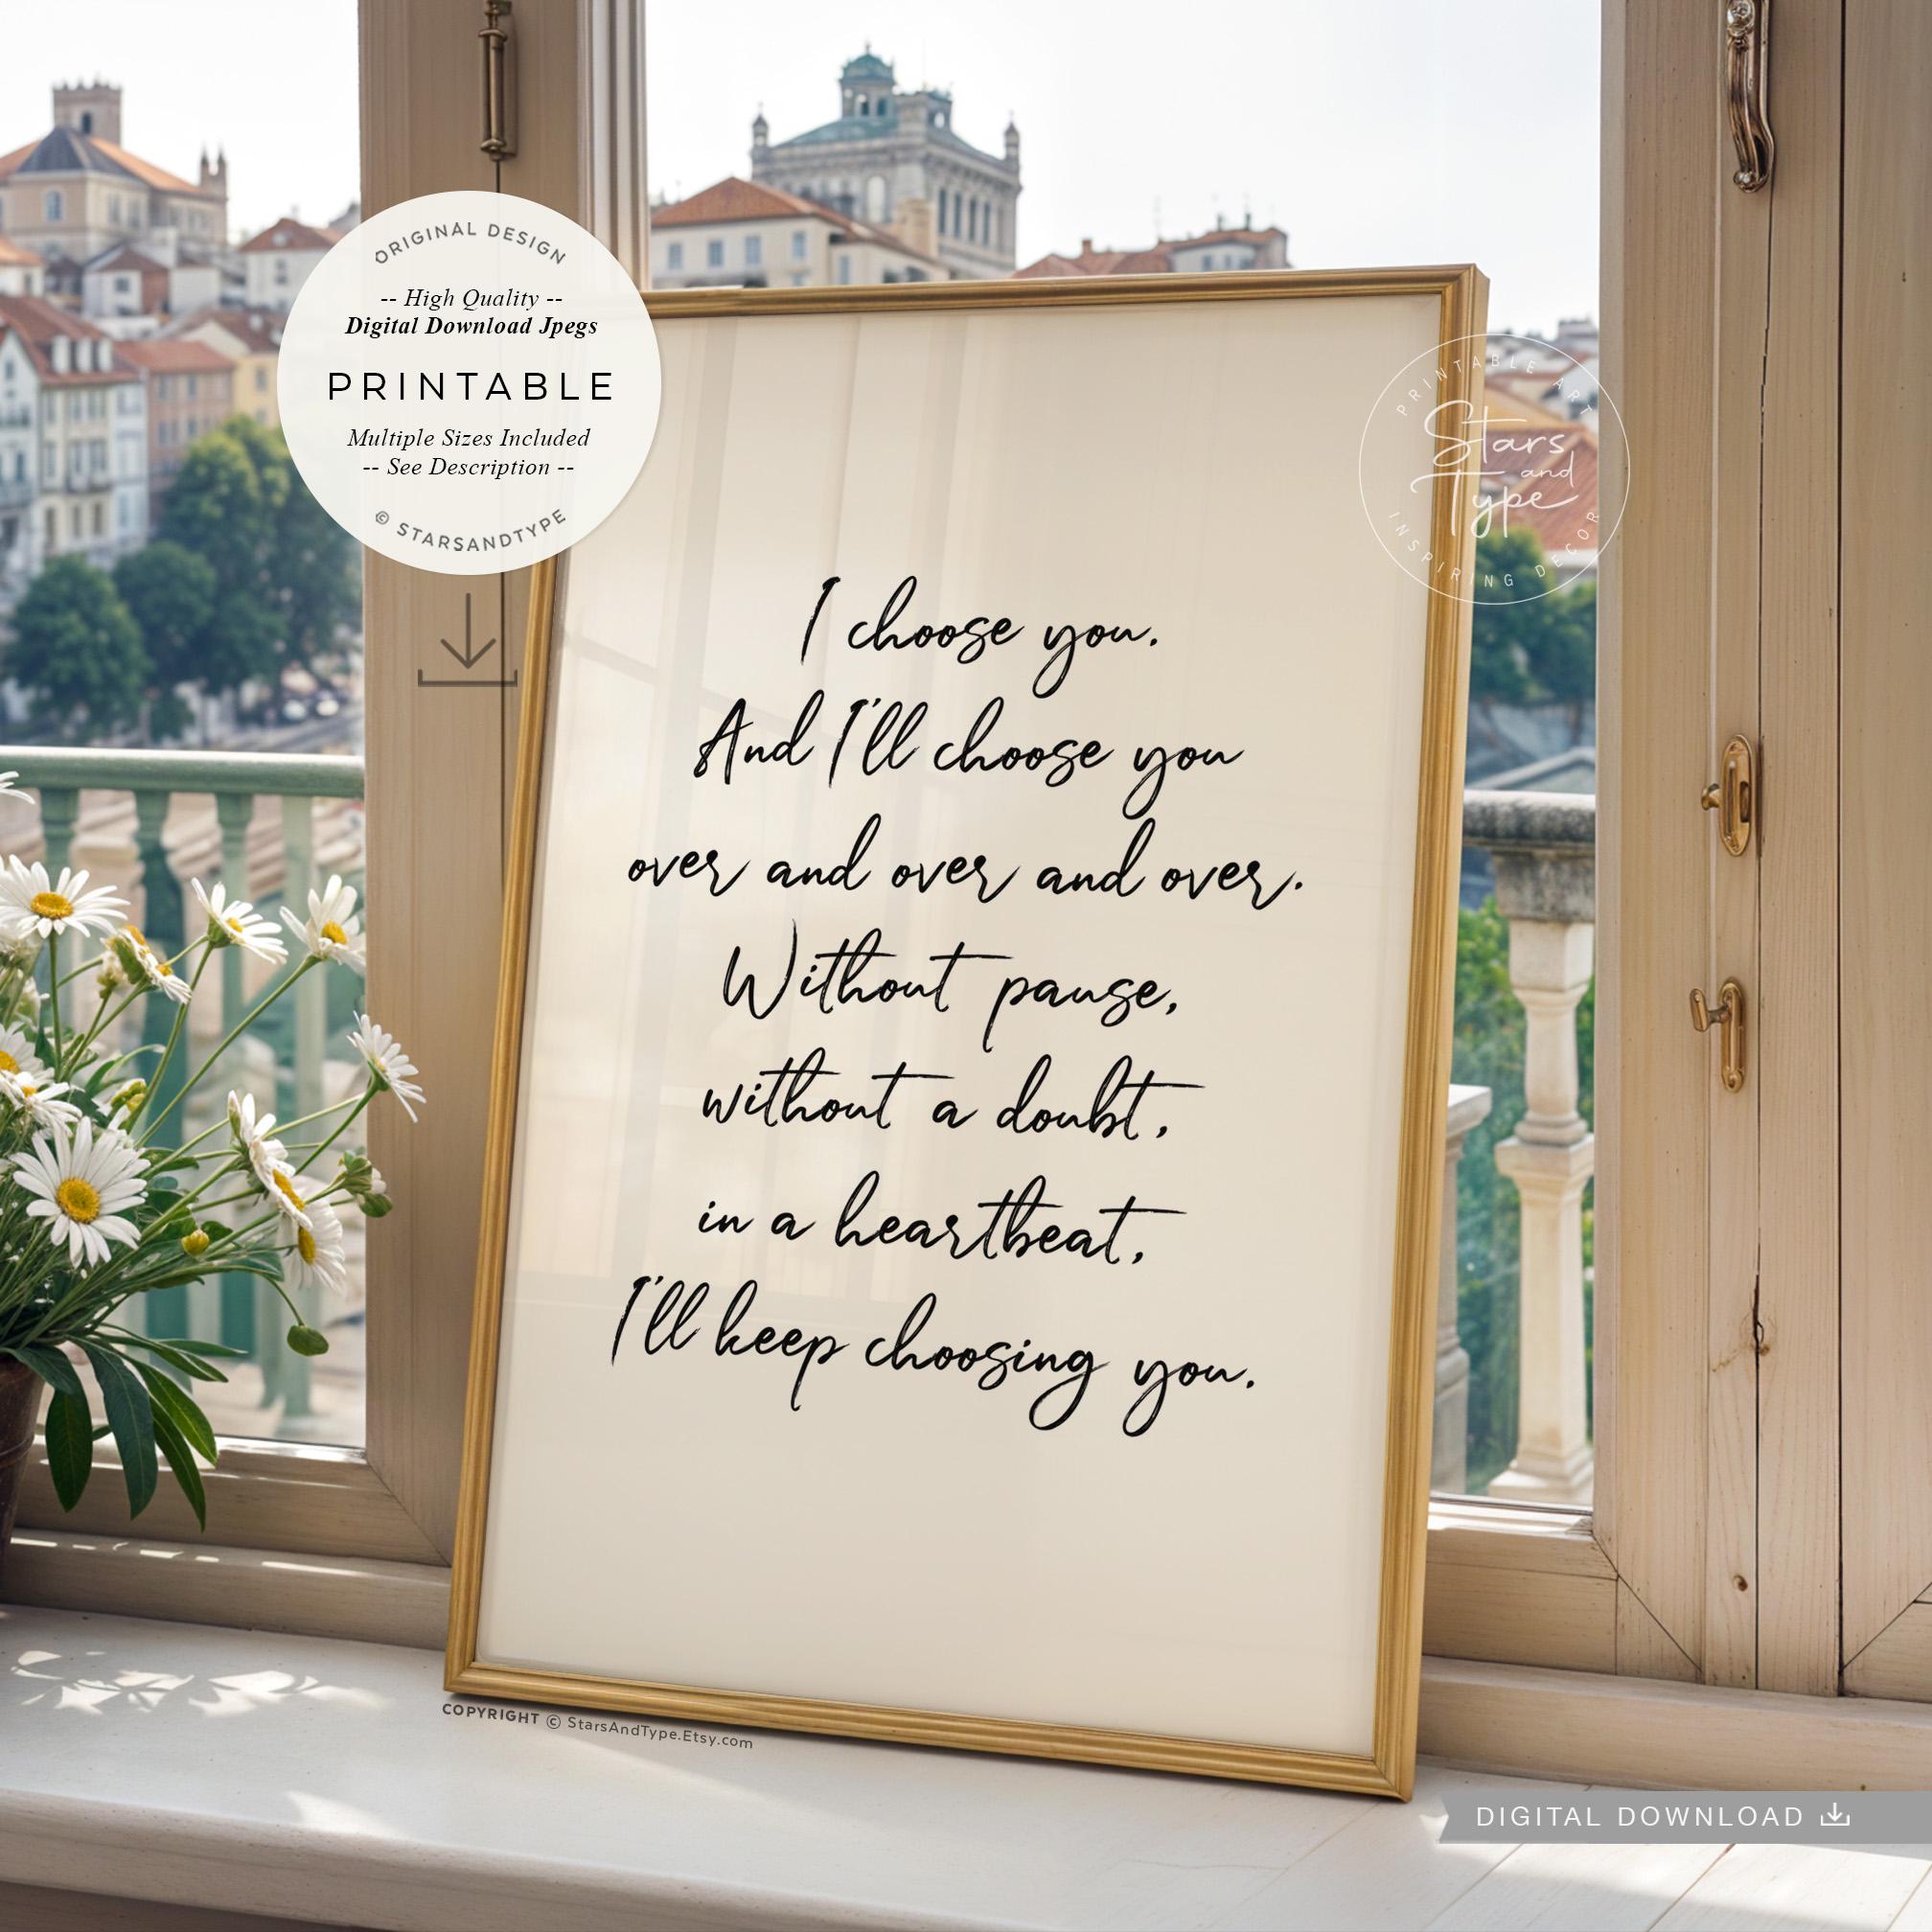 ORIGINAL DESIGN
-- High Quality --
Digital Download Jpegs
PRINTABLE
Multiple Sizes Included
-- See Description --
© STARSANDTYPE
PRINTABLE ART
Stars
and
Type
INSPIRING DECOR
I choose you.
And I'll choose you
over and over and over.
Without pause,
without a doubt,
in a heartbeat,
I'll keep choosing you.
COPYRIGHT © StarsAndType.Etsy.com
DIGITAL DOWNLOAD